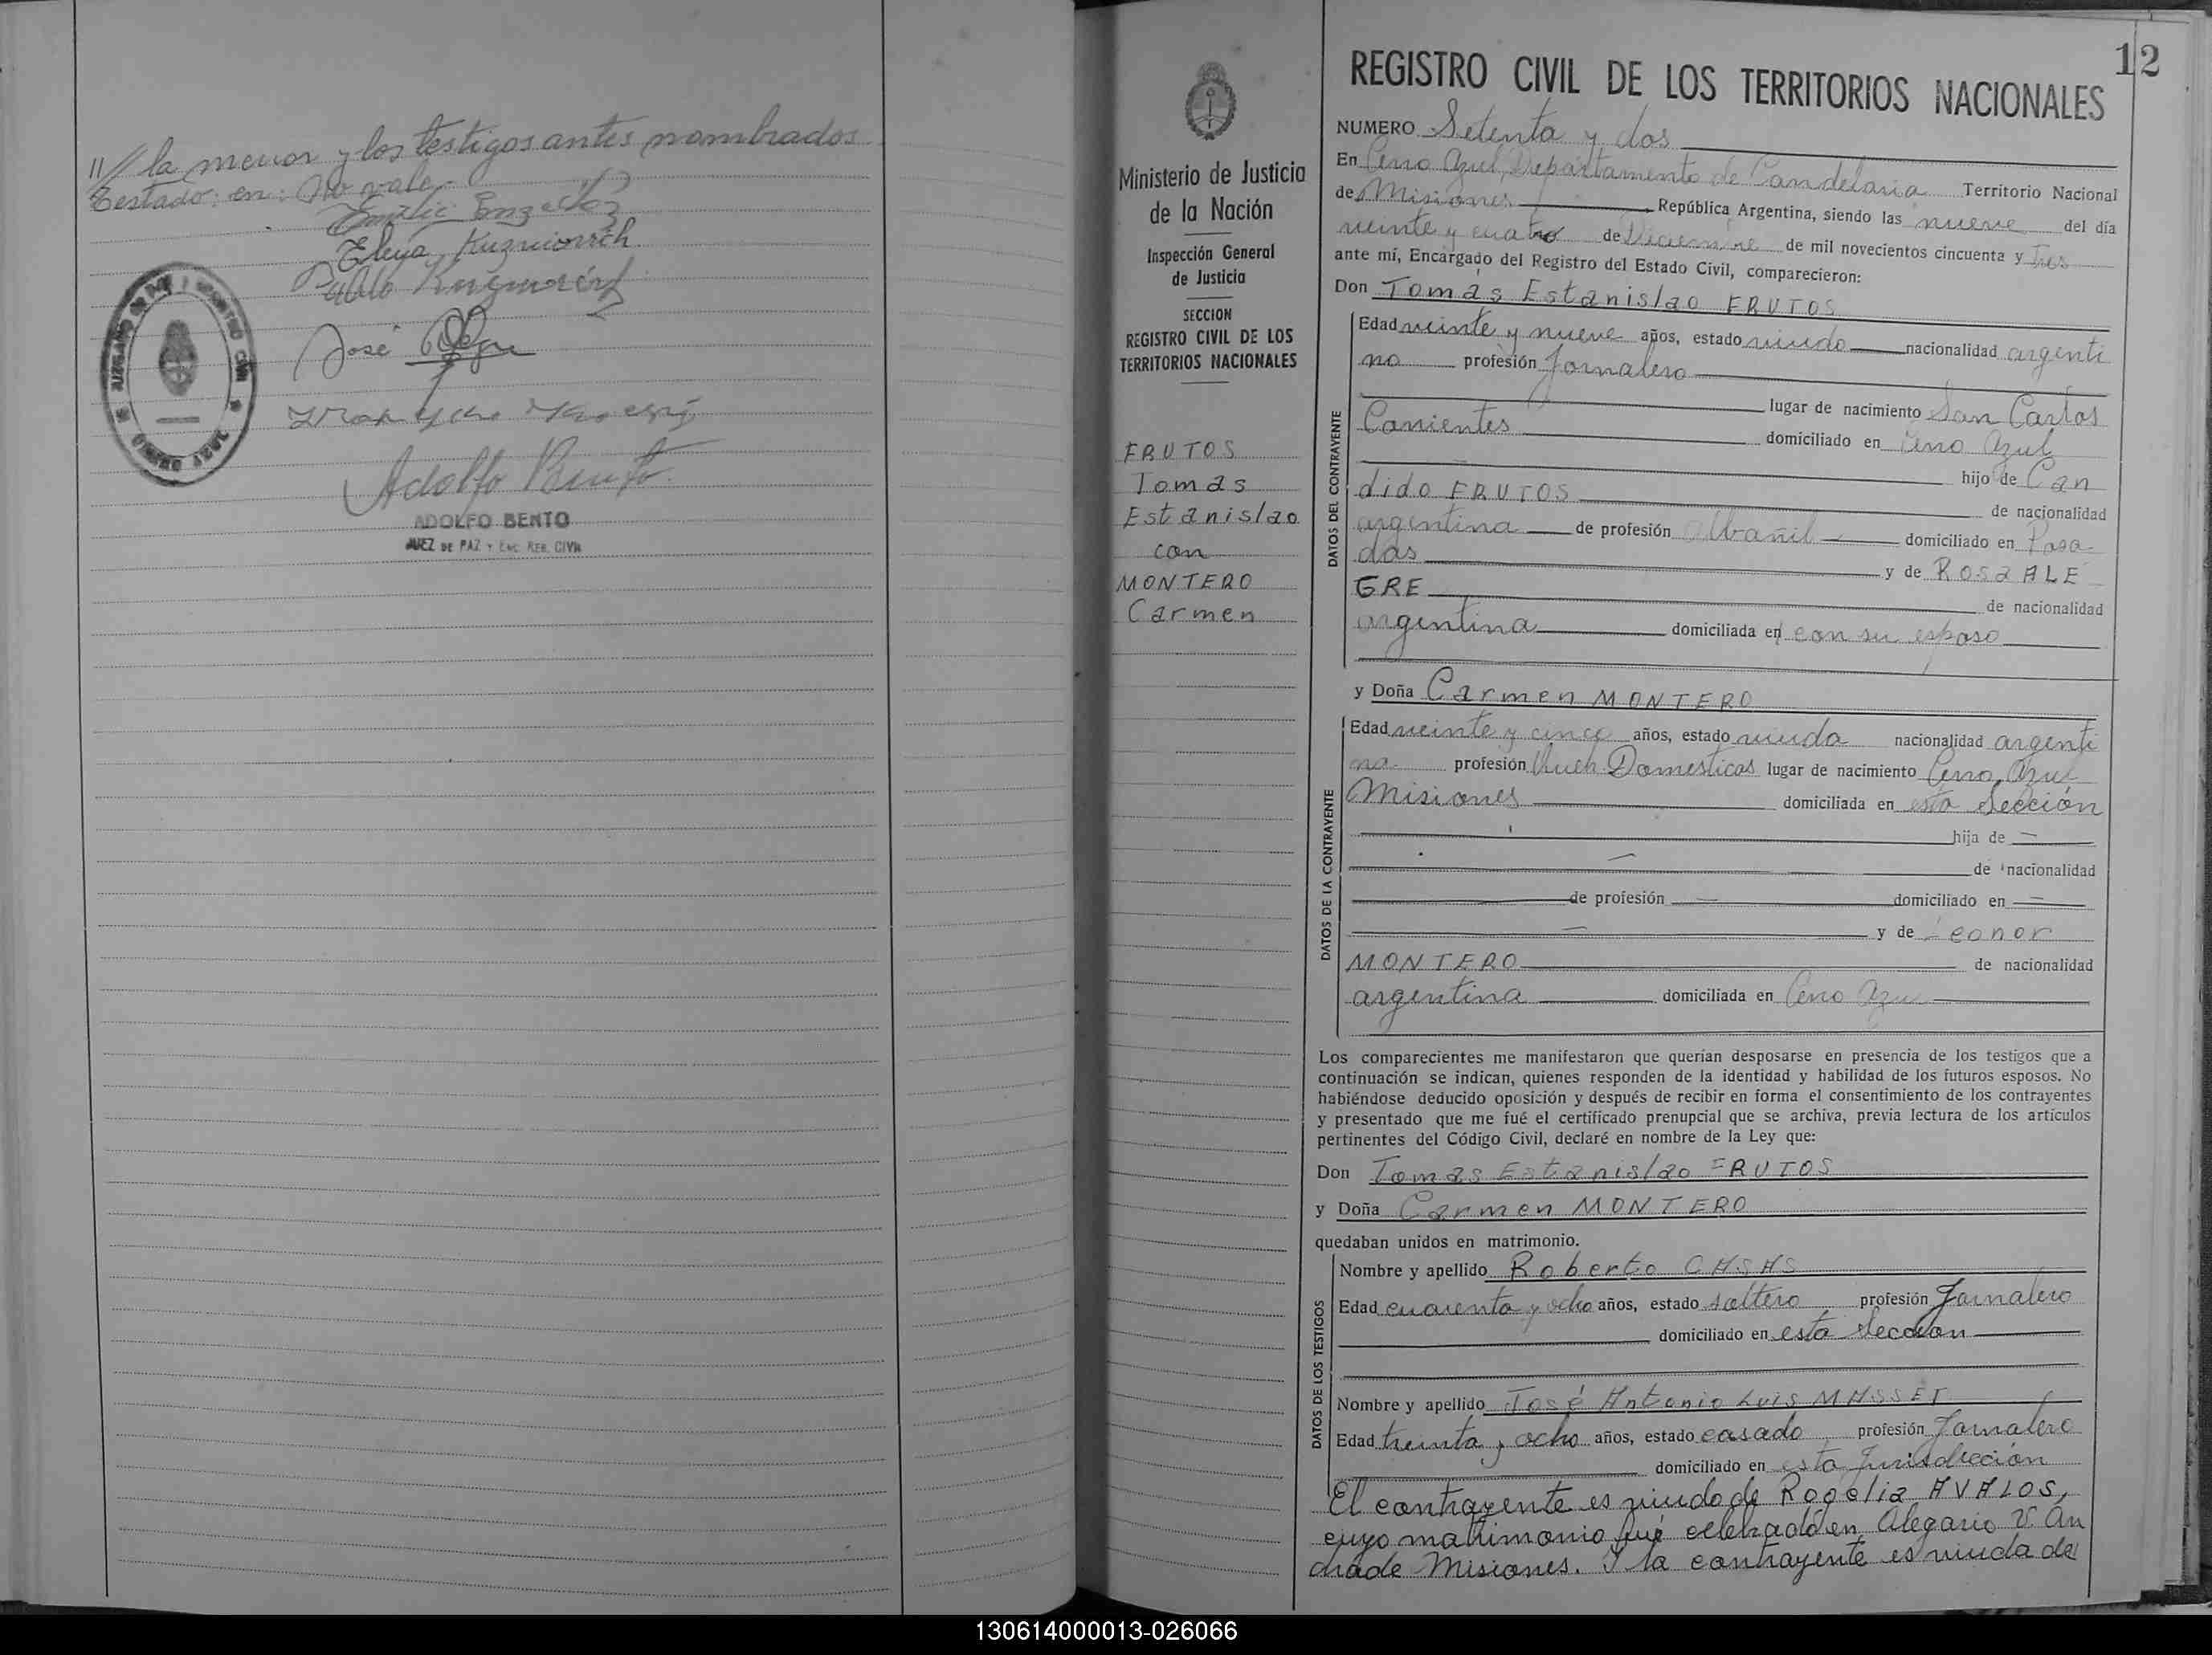 11// la menor y los testigos antes nombrados
Testado: en: No vale.
Elena Kuzniorrich
Pablo
José
Adolfo Bento
ADOLFO BENTO
JUEZ DE PAZ Y ENC. REG. CIVIL
Ministerio de Justicia
de la Nación
Inspección General
de Justicia
SECCION
REGISTRO CIVIL DE LOS
TERRITORIOS NACIONALES
FRUTOS
Tomas
Estanislao
con
MONTERO
Carmen
12
REGISTRO CIVIL DE LOS TERRITORIOS NACIONALES
NUMERO Setenta y dos
En Cerro Azul, Departamento de Candelaria Territorio Nacional
de Misiones República Argentina, siendo las nueve del día
veinte y cuatro de Diciembre de mil novecientos cincuenta y tres
ante mí, Encargado del Registro del Estado Civil, comparecieron:
Don Tomás Estanislao FRUTOS
DATOS DEL CONTRAYENTE
Edad veinte y nueve años, estado viudo nacionalidad argenti
no profesión Jornalero
lugar de nacimiento San Carlos
Corrientes domiciliado en Cerro Azul
hijo de Can
dido FRUTOS de nacionalidad
argentina de profesión albañil domiciliado en Posa
das y de Rosa ALE
GRE de nacionalidad
argentina domiciliada en con su esposo
y Doña Carmen MONTERO
DATOS DE LA CONTRAYENTE
Edad veinte y cinco años, estado viuda nacionalidad argenti
na profesión Queh. Domesticos lugar de nacimiento Cerro Azul
Misiones domiciliada en esta Sección
hija de —
— de nacionalidad
de profesión — domiciliado en —
— y de Leonor
MONTERO de nacionalidad
argentina domiciliada en Cerro Azul
Los comparecientes me manifestaron que querían desposarse en presencia de los testigos que a
continuación se indican, quienes responden de la identidad y habilidad de los futuros esposos. No
habiéndose deducido oposición y después de recibir en forma el consentimiento de los contrayentes
y presentado que me fué el certificado prenupcial que se archiva, previa lectura de los artículos
pertinentes del Código Civil, declaré en nombre de la Ley que:
Don Tomas Estanislao FRUTOS
y Doña Carmen MONTERO
quedaban unidos en matrimonio.
DATOS DE LOS TESTIGOS
Nombre y apellido Roberto CASAS
Edad cuarenta y ocho años, estado soltero profesión Jornalero
domiciliado en esta Sección
Nombre y apellido José Antonio Luis MASSET
Edad treinta y ocho años, estado casado profesión Jornalero
domiciliado en esta Jurisdicción
El contrayente es viudo de Rogelia AVALOS,
cuyo matrimonio fué celebrado en Olegario V. An
drade Misiones. Y la contrayente es viuda de
130614000013-026066